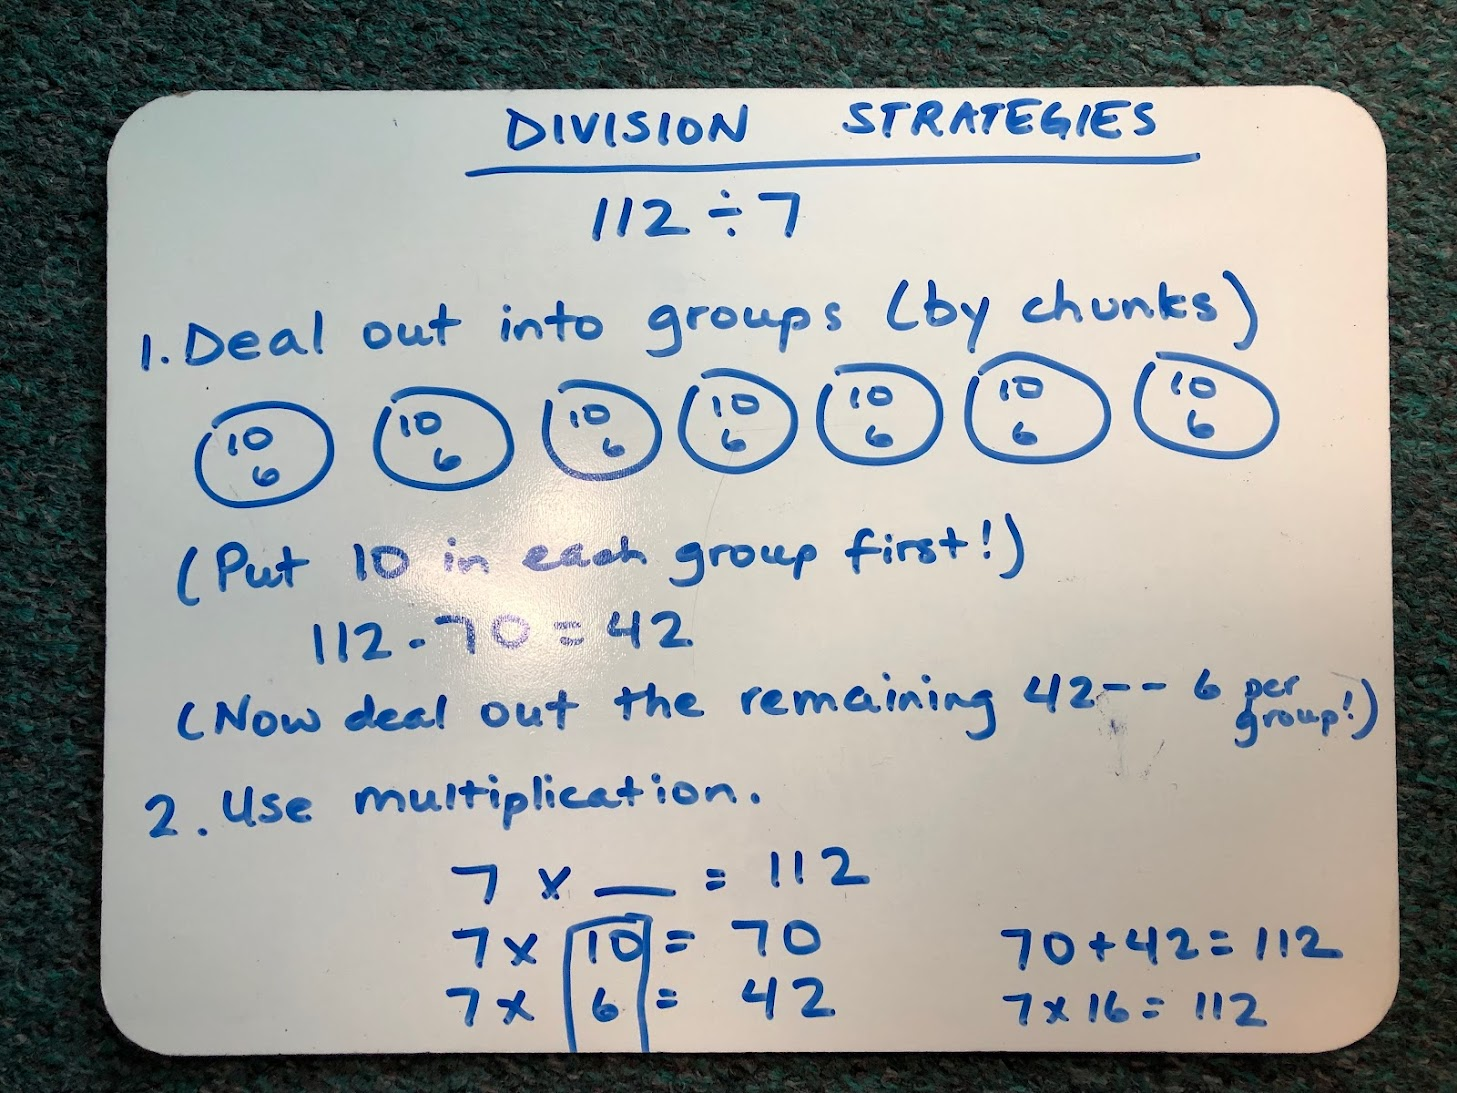 DIVISION STRATEGIES
112 ÷ 7
1. Deal out into groups (by chunks)
10 10 10 10 10 10 10
6 6 6 6 6 6 6
(Put 10 in each group first!)
112 - 70 = 42
(Now deal out the remaining 42 -- 6 per group!)
2. Use multiplication.
7 x __ = 112
7 x 10 = 70
7 x 6 = 42
70 + 42 = 112
7 x 16 = 112